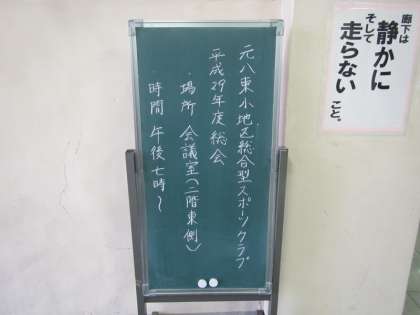 元八東小地区総合型スポーツクラブ
平成29年度総会
・場所 会議室(二階東側)
時間 午後七時~
廊下は
静かに
そして
走らない
こと。